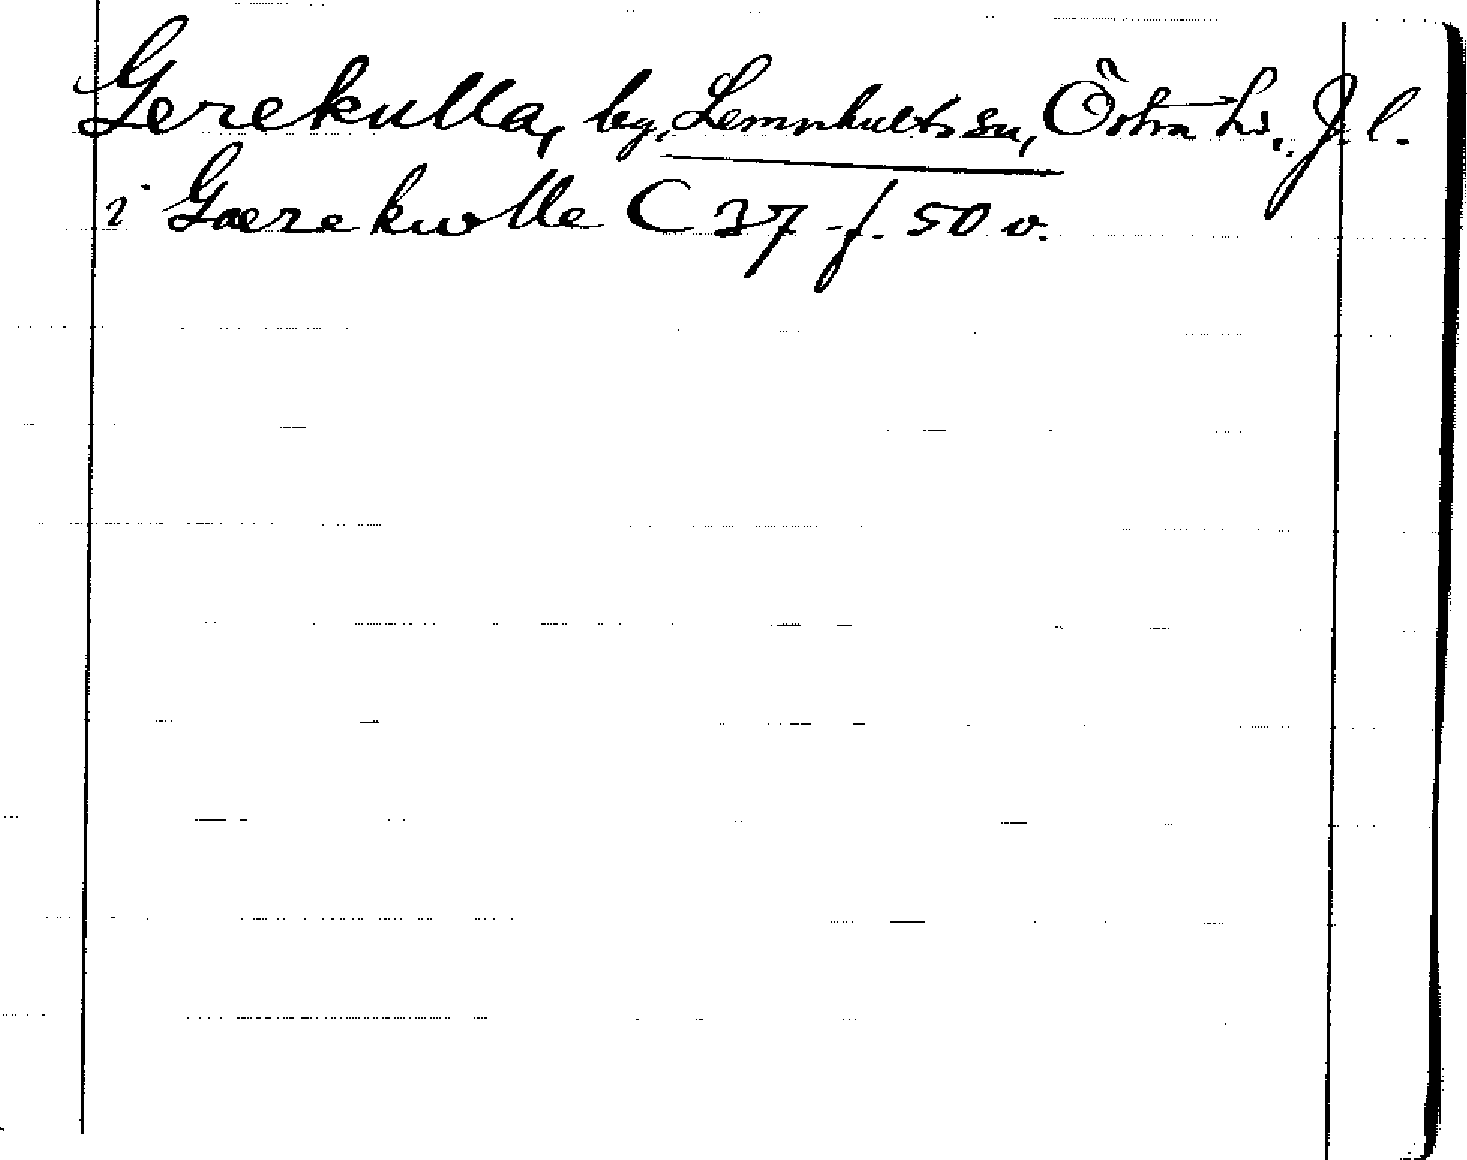 Gerekulla, by, Lemnhults sn, Östra hd., J. l.
i Gaerekwlle C 37 f. 50 v.